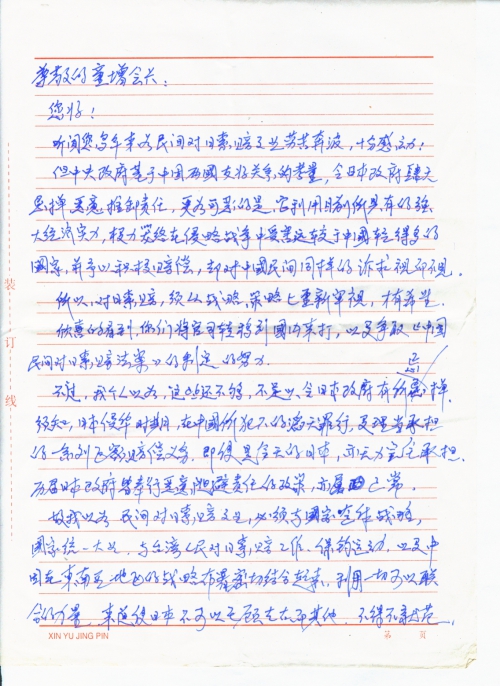 尊敬的童增会长：
您好！
听闻您多年来为民间对日索赔之业劳苦奔波，十分感动！
但中央政府基于中国两国友好关系的考量，令日本政府肆无
忌惮恶意推卸责任，更为可恶的是，它利用目前所具有的强
大经济实力，极力笼络在侵略战争中受害远较于中国轻得多的
国家，并予以积极赔偿，却对中国民间同样的诉求视而不见。
所以，对日索赔，须从战略、策略上重新审视，才有希望。
欣喜的看到，你们将官司转移到国内来打，以及争取《中国
民间对日索赔法案》的制定的努力。
不过，我个人以为，这些还不够，不足以令日本政府有所忌惮。
经知，日本侵华时期，在中国所犯下的滔天罪行，及理当承担
的一系列国家赔偿义务，即使是今天的日本，亦无力完全承担。
历届日本政府皆奉行恶意逃避责任的政策，亦属正常。
故我以为民间对日索赔之业，必须与国家整体战略，
国家统一大业，与台湾人民对日索赔工作、保钓运动，以及中
国在东南亚地区的战略布署密切结合起来，利用一切可以联
合的力量，来迫使日本不可以无顾左右而其他，不得不
XIN YU JING PIN
第 页
装
订
线